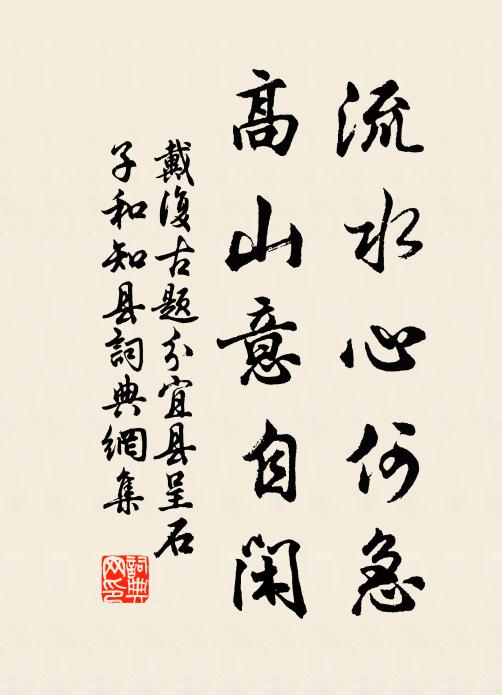 流水心何急
高山意自閑
戴復古题分宜县呈石
子和知县詞典網集
詞典网印